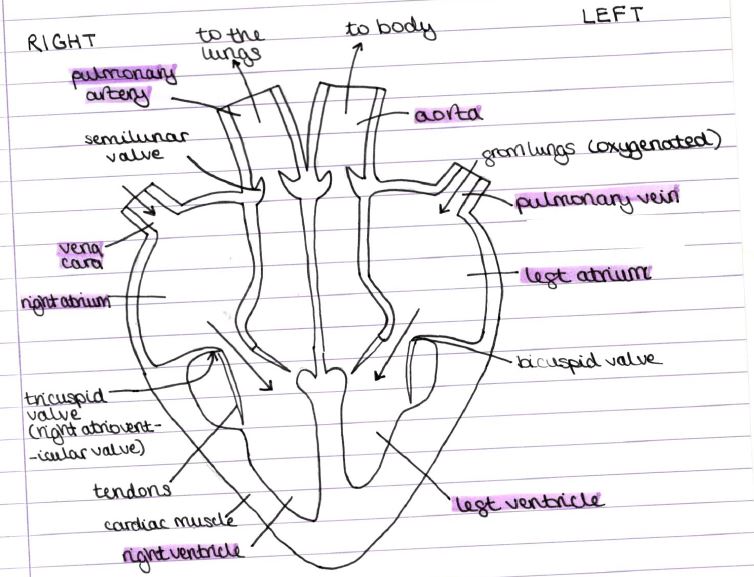 RIGHT
LEFT
to the
lungs
to body
pulmonary
artery
aorta
semilunar
valve
from lungs (oxygenated)
pulmonary vein
vena
cava
left atrium
right atrium
bicuspid valve
tricuspid
valve
(right atriovent-
-icular valve)
tendons
cardiac muscle
right ventricle
left ventricle